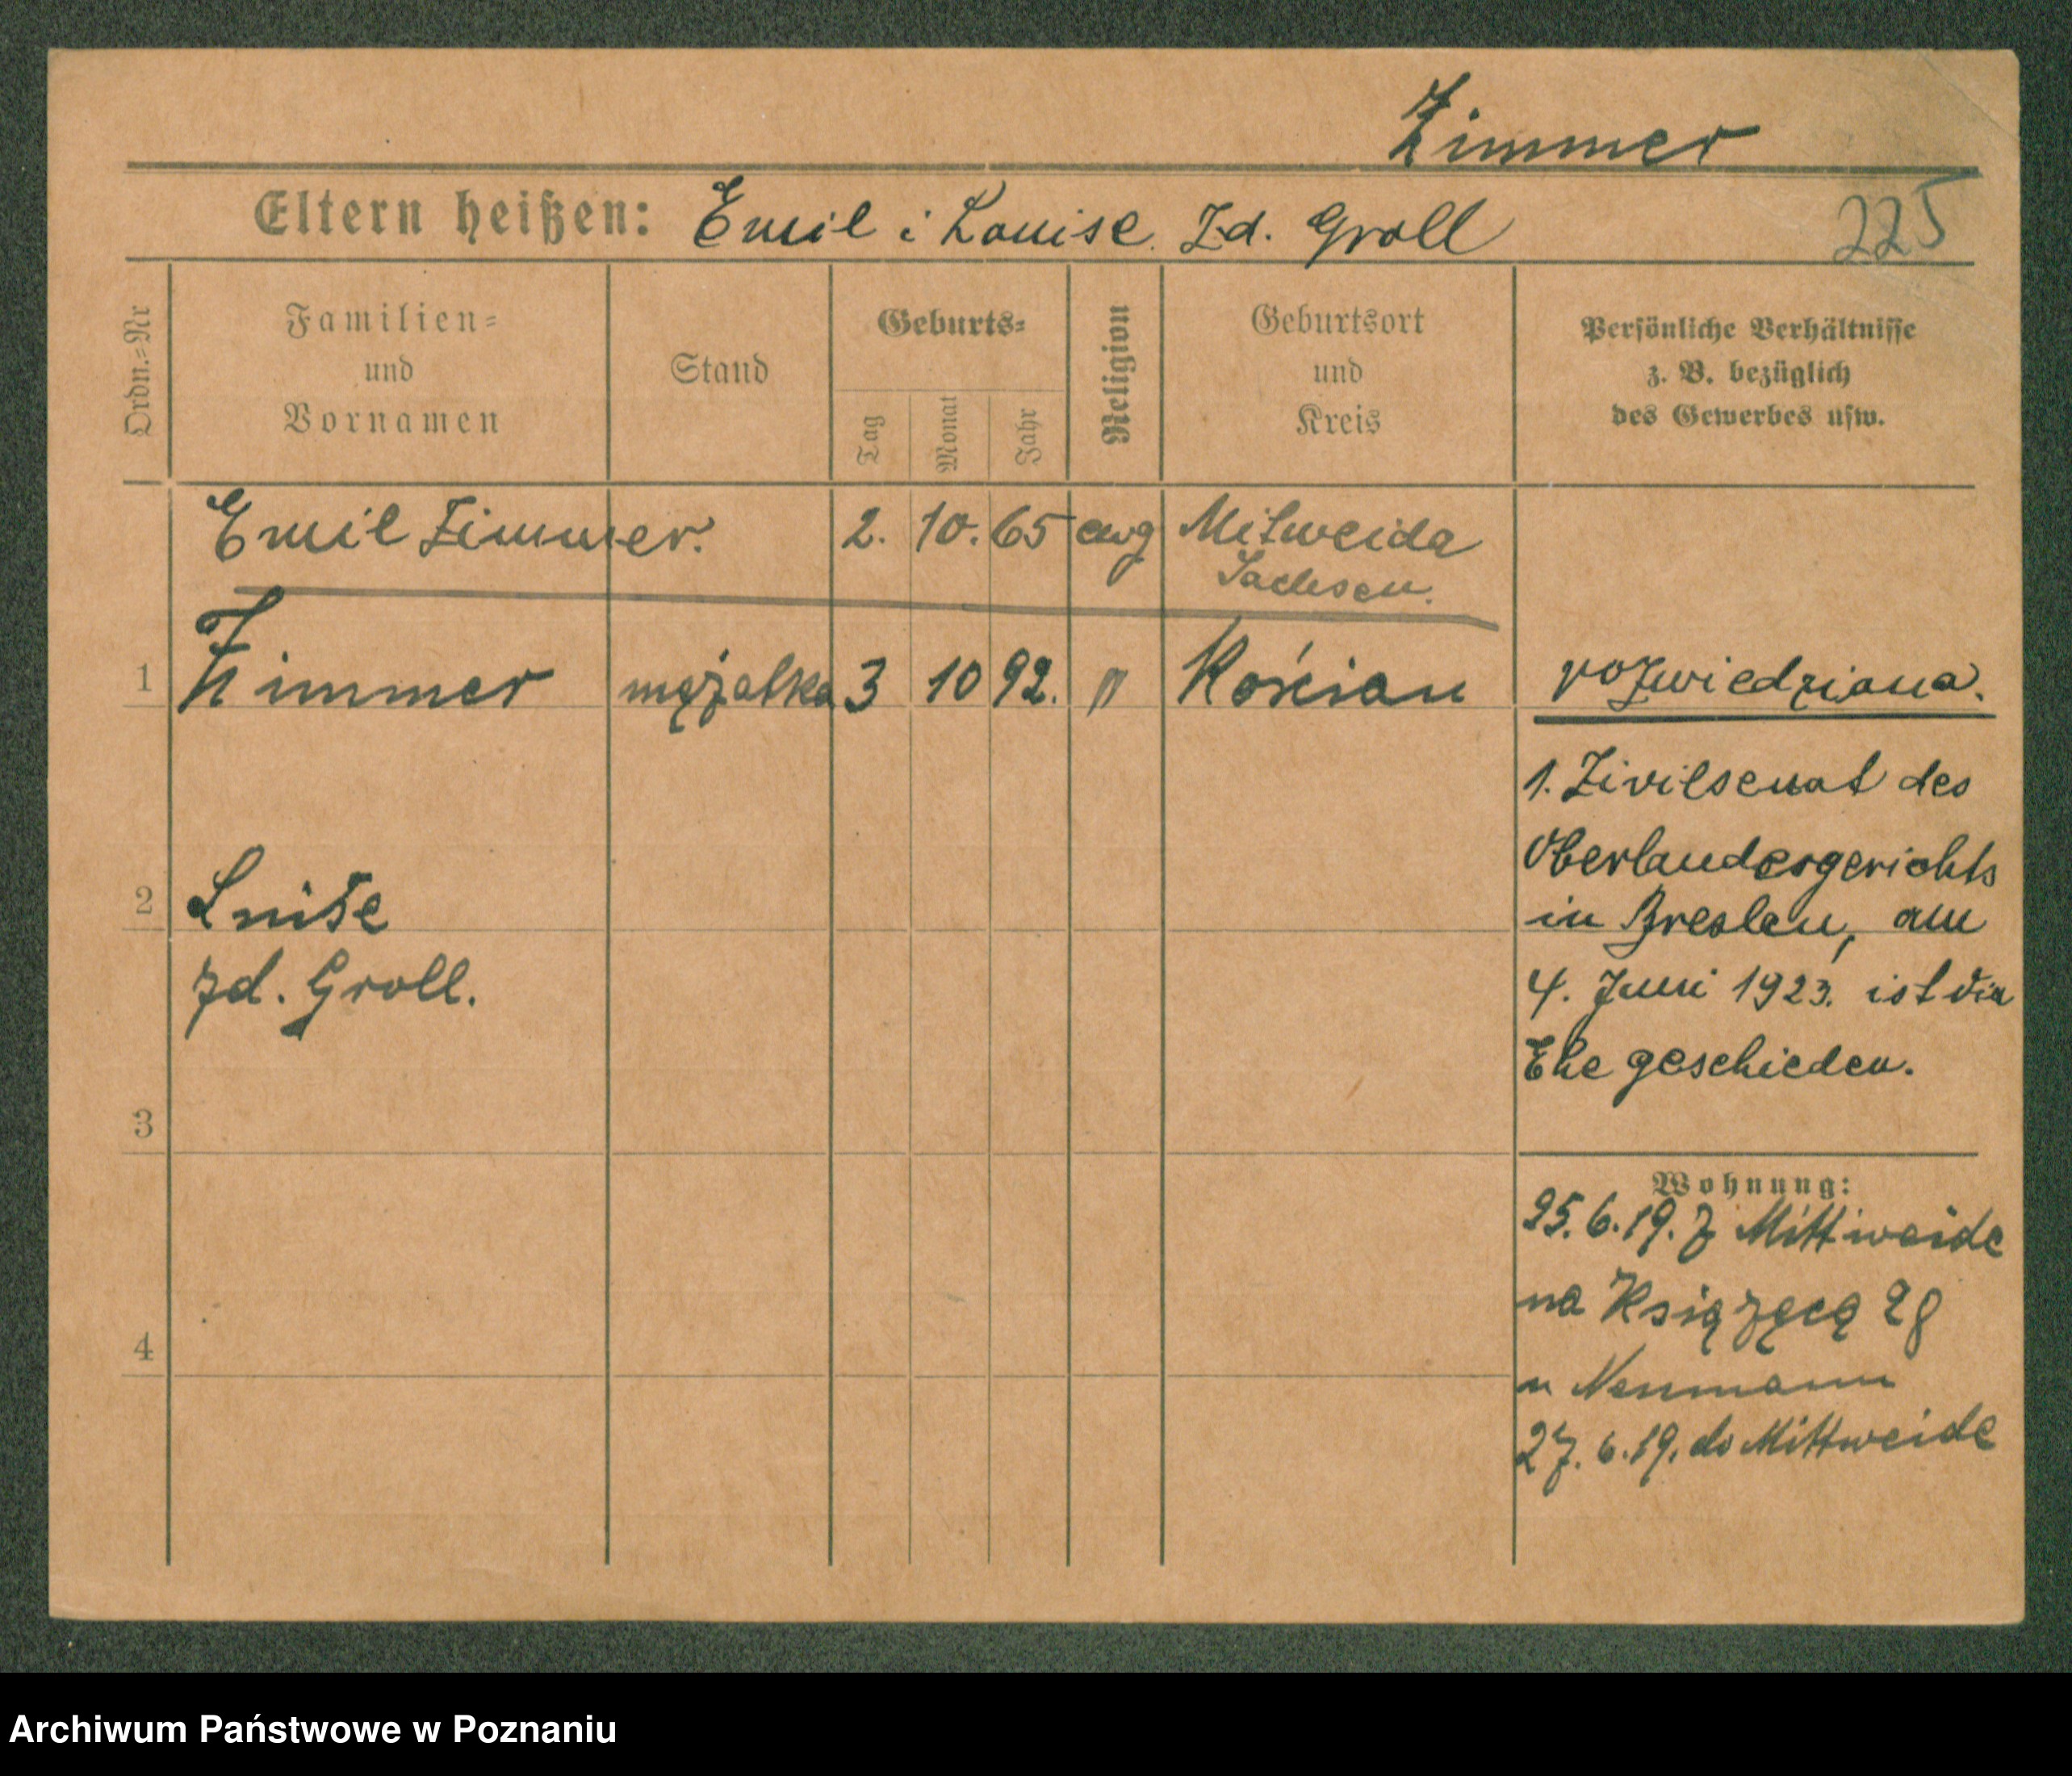 Zimmer
Eltern heißen: Emil i Louise Zd. Groll
225
Ordn.=Nr
Familien=
und
Vornamen
Stand
Geburts=
Tag
Monat
Jahr
Religion
Geburtsort
und
Kreis
Persönliche Verhältnisse
z. B. bezüglich
des Gewerbes usw.
Emil Zimmer. 2. 10. 65 ewg Mitweida
Sachsen.
1 Zimmer mężatka 3 10 92. " Kościan rozwiedziana.
1. Zivilsenat des
Oberlandesgerichts
2 Luise
in Breslau, am
zd. Groll.
4. Juni 1923. ist die
Ehe geschieden.
3
Wohnung:
25. 6. 19. z Mittweide
na Książęcą 28
4
u Neumann
27. 6. 19. do Mittweide
Archiwum Państwowe w Poznaniu